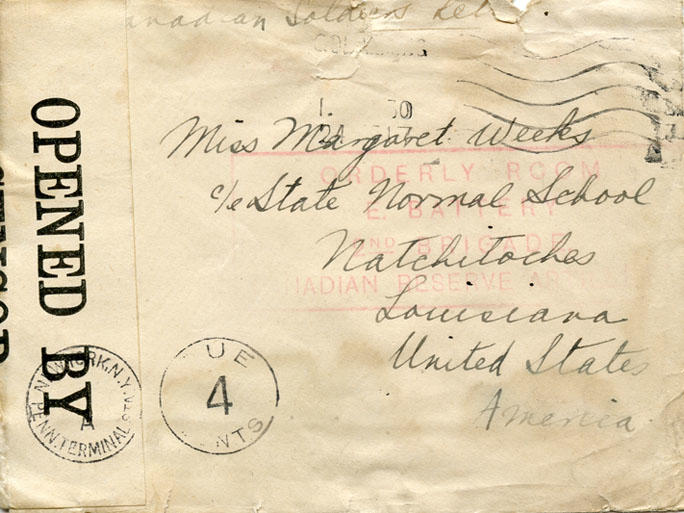 anadian Soldiers Let
Miss Margaret Weeks
c/o State Normal School
Natchitoches
Louisiana
United States
America
ORDERLY ROOM
E. BATTERY
2ND BRIGADE
NADIAN RESERVE AR
OPENED BY
CENSOR
NEW YORK, N.Y.
PENN. TERMINAL STA.
A
DUE
4
CENTS